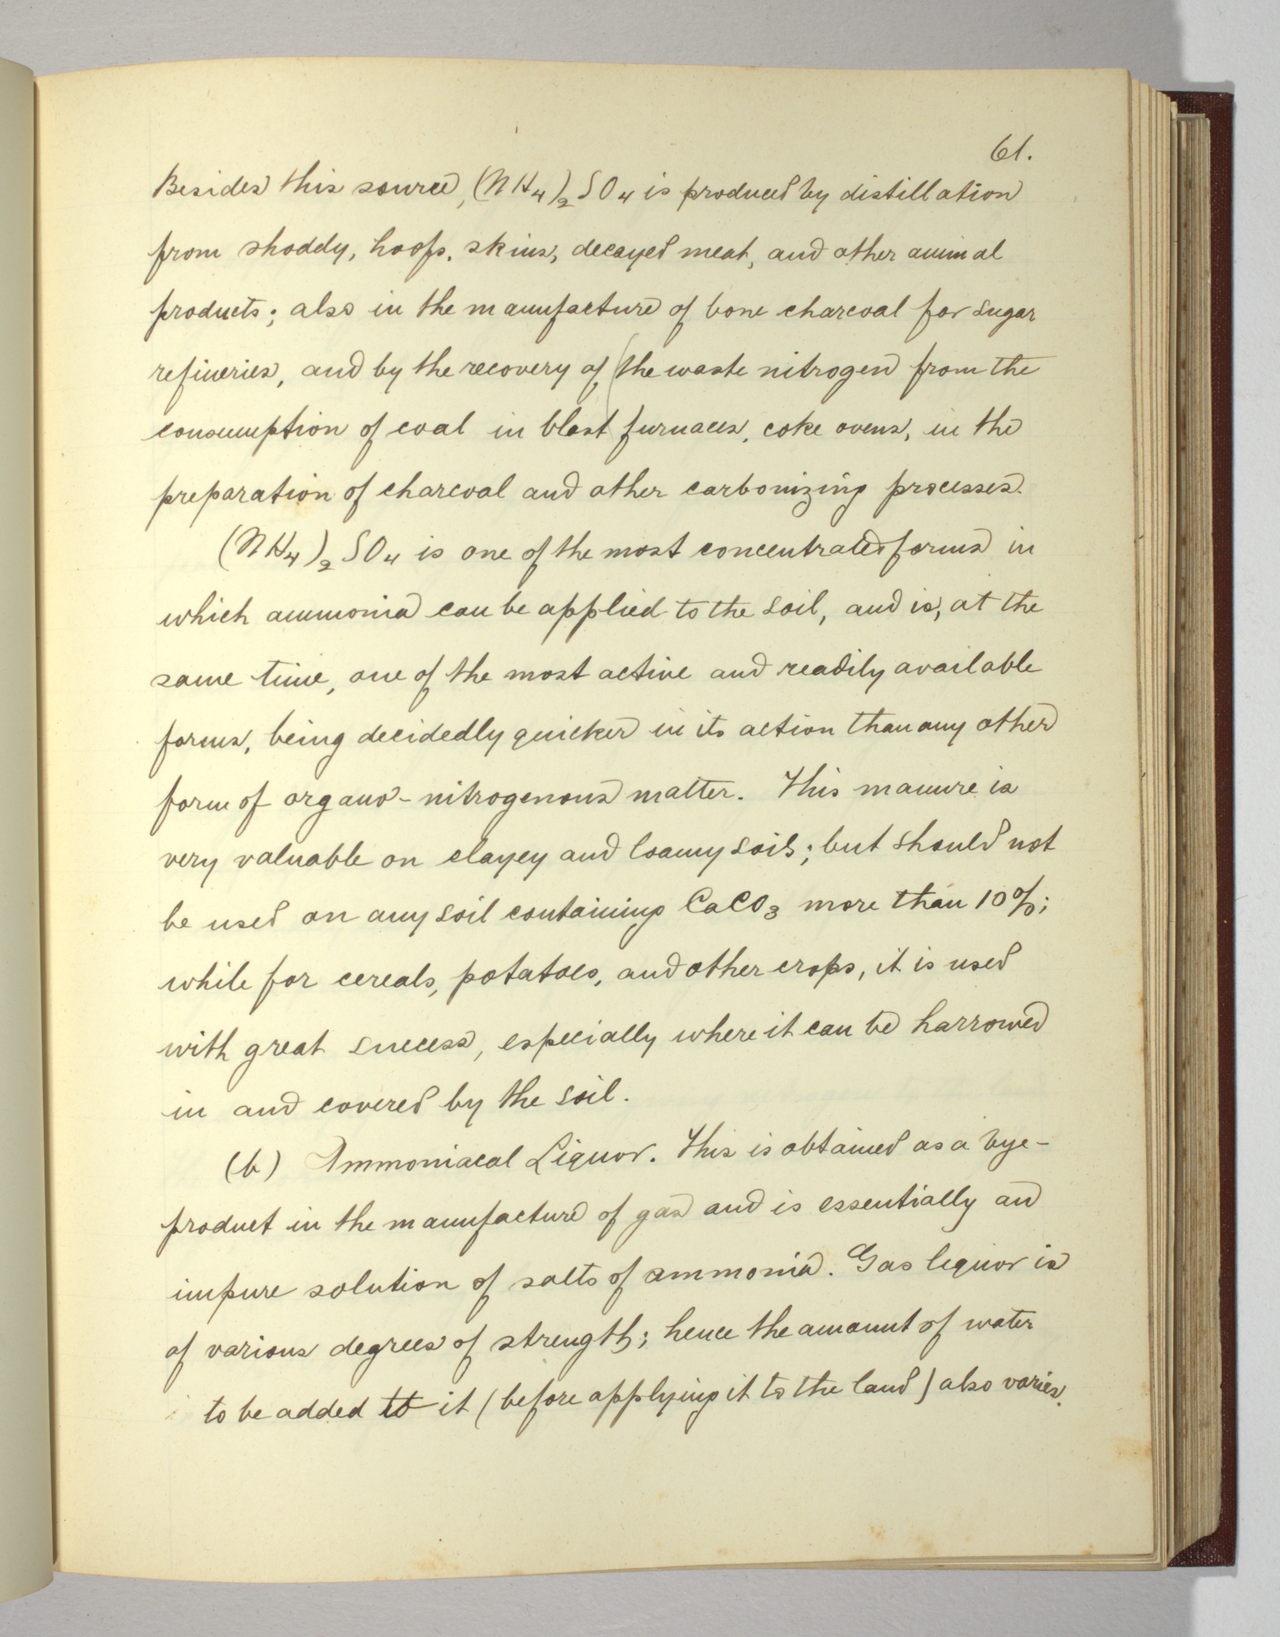 61.
Besides this source, (NH₄)₂SO₄ is produced by distillation
from shoddy, hoofs, skins, decayed meat, and other animal
products; also in the manufacture of bone charcoal for sugar
refineries, and by the recovery of (the waste nitrogen from the
consumption of coal in blast furnaces, coke ovens, in the
preparation of charcoal and other carbonizing processes.
(NH₄)₂SO₄ is one of the most concentrated forms in
which ammonia can be applied to the soil, and is, at the
same time, one of the most active and readily available
forms, being decidedly quicker in its action than any other
form of organo-nitrogenous matter. This manure is
very valuable on clayey and loamy soils; but should not
be used on any soil containing CaCO₃ more than 10%;
while for cereals, potatoes, and other crops, it is used
with great success, especially where it can be harrowed
in and covered by the soil.
(b) Ammoniacal Liquor. This is obtained as a bye-
product in the manufacture of gas and is essentially an
impure solution of salts of ammonia. Gas liquor is
of various degrees of strength; hence the amount of water
to be added to it (before applying it to the land) also varies.